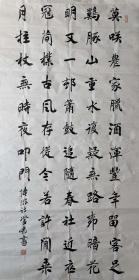 莫咲農家臘酒渾豐年留客足
鷄豚山重水複疑無路柳暗花
明又一邨簫鼓追隨春社近衣
冠簡樸古風存從今若許閒乘
月拄杖無時夜叩門 詩 書